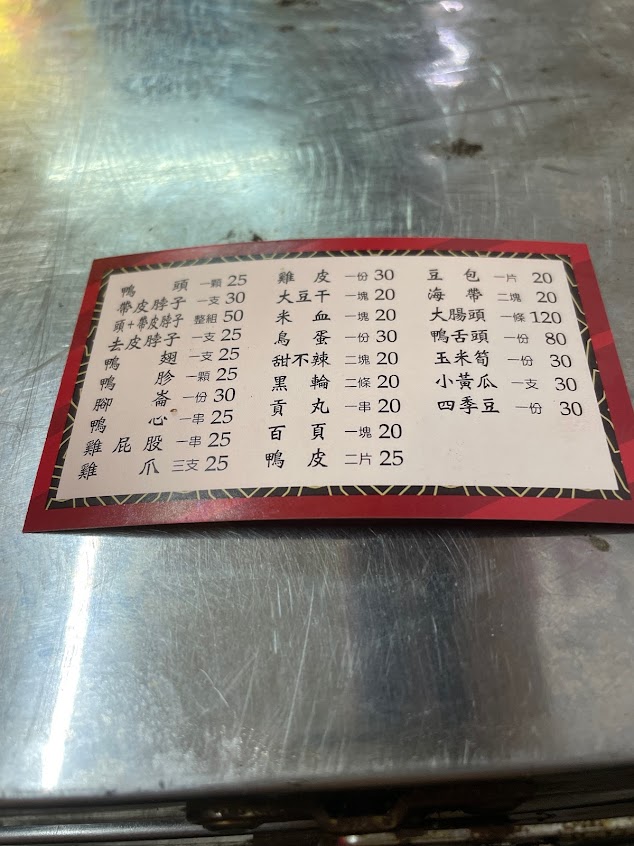 鴨頭 一顆 25
帶皮脖子 一支 30
頭+帶皮脖子 整組 50
去皮脖子 一支 25
鴨翅 一支 25
鴨胗 一顆 25
腳崙 一份 30
鴨心 一串 25
雞屁股 一串 25
雞爪 三支 25
雞皮 一份 30
大豆干 一塊 20
米血 一塊 20
鳥蛋 一份 30
甜不辣 二塊 20
黑輪 二條 20
貢丸 一串 20
百頁 一塊 20
鴨皮 二片 25
豆包 一片 20
海帶 二塊 20
大腸頭 一條 120
鴨舌頭 一份 80
玉米筍 一份 30
小黃瓜 一支 30
四季豆 一份 30